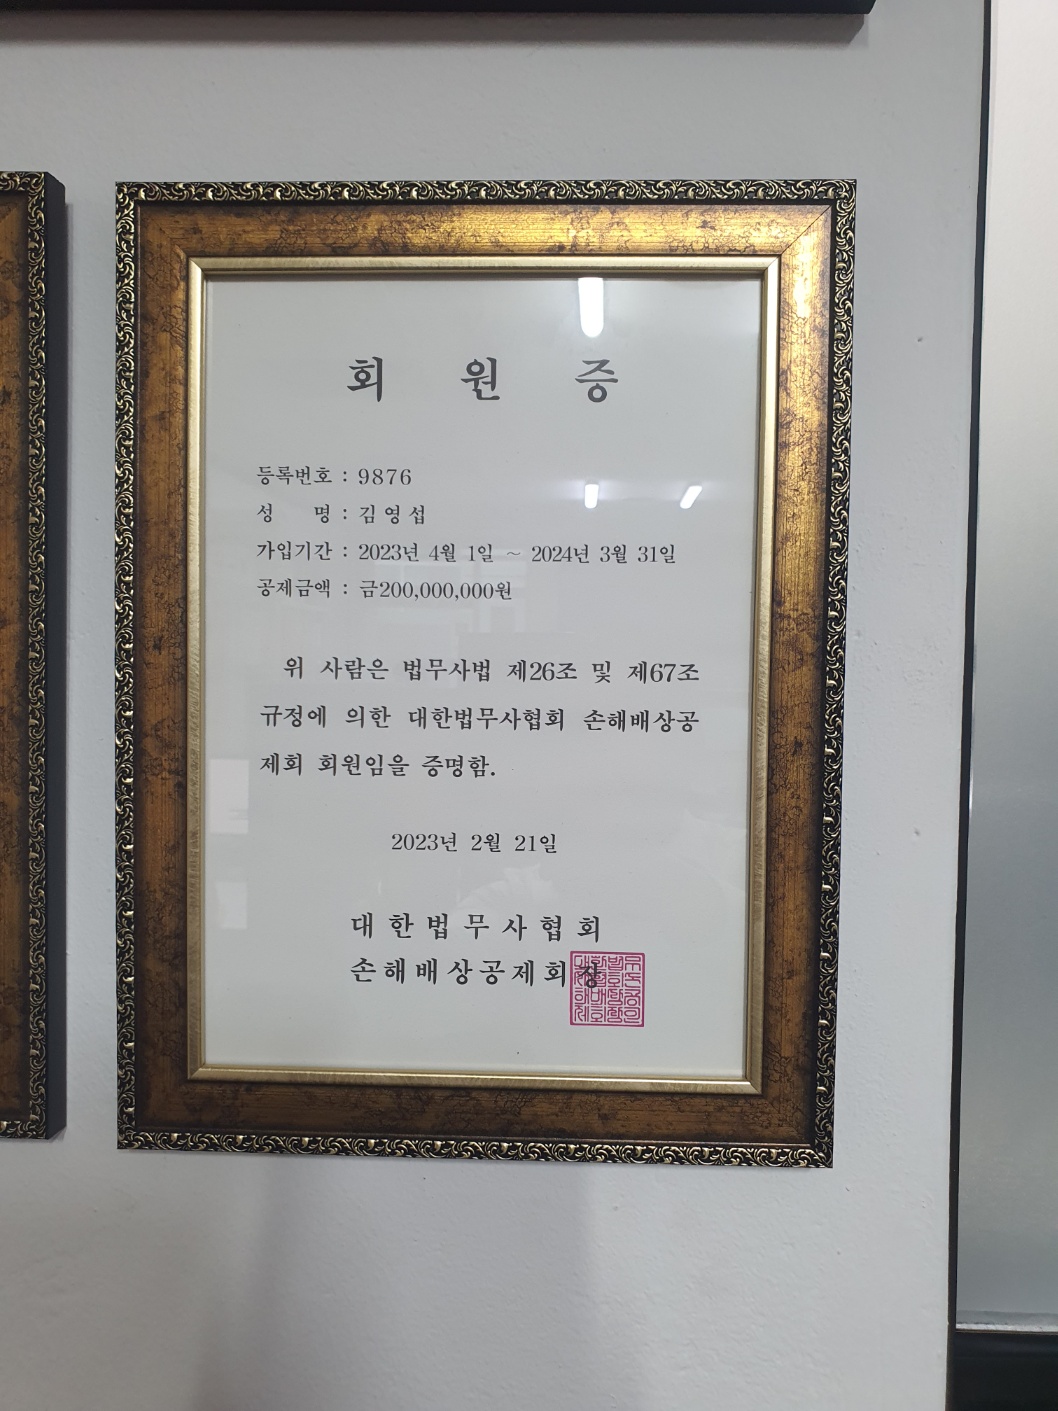 회 원 증
등록번호 : 9876
성 명 : 김영섭
가입기간 : 2023년 4월 1일 ~ 2024년 3월 31일
공제금액 : 금200,000,000원
위 사람은 법무사법 제26조 및 제67조
규정에 의한 대한법무사협회 손해배상공
제회 회원임을 증명함.
2023년 2월 21일
대한법무사협회
손해배상공제회장